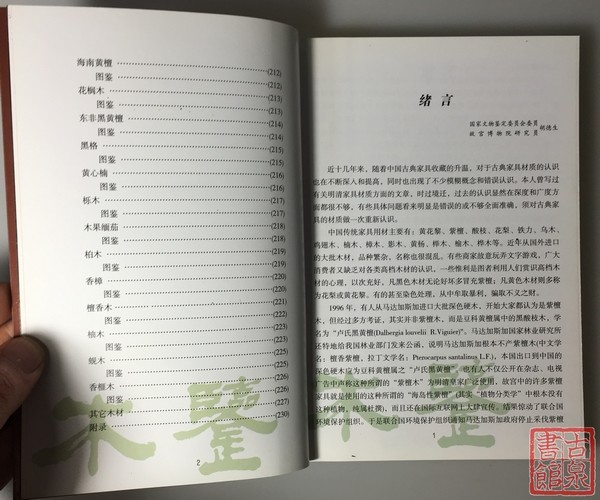 海南黄檀 (212)
图鉴 (212)
花榈木 (213)
图鉴 (213)
东非黑黄檀 (214)
图鉴 (214)
黑格 (215)
图鉴 (215)
黄心楠 (216)
图鉴 (216)
栎木 (217)
图鉴 (217)
木果缅茄 (218)
图鉴 (218)
柏木 (219)
图鉴 (219)
香樟 (220)
图鉴 (220)
檀香木 (221)
图鉴 (222)
柚木 (223)
图鉴 (224)
蚬木 (225)
图鉴 (226)
香榧木 (227)
图鉴 (227)
其它木材 (228)
附录 (230)
2
木鉴
绪言
国家文物鉴定委员会委员
故宫博物院研究员
胡德生
近十几年来，随着中国古典家具收藏的升温，对于古典家具材质的认识
也在不断深入和提高，同时也出现了不少模糊概念和错误认识。本人曾写过
有关明清家具材质方面的文章，时过境迁，过去的认识显然在深度和广度方
面都很不够，有些具体问题看来明显是错误的或不够全面准确，须对古典家
具的材质做一次重新认识。
中国传统家具用材主要有：黄花黎、紫檀、酸枝、花梨、铁力、乌木、
鸡翅木、楠木、樟木、影木、黄杨、榉木、榆木、桦木等。近年从国外进口
的大批木材，品种繁杂，名称也很混乱，有些商家故意玩弄文字游戏，广大
消费者又缺乏对各类高档木材的认识，一些惟利是图者利用人们赏识高档木
材的心理，以次充好，凡黑色木材无论好坏多冒充紫檀；凡黄色木材则多称
为花梨或黄花黎，有的甚至染色处理，从中牟取暴利，骗取不义之财。
1996 年，有人从马达加斯加进口大批深色硬木，开始大家都认为是紫檀
木，但经过多方考证，其实并非紫檀木，而是豆科黄檀属中的黑酸枝木，学
名为“卢氏黑黄檀(Dalbergia louvelii R.Viguier)”。马达加斯加国家林业研究所
还特地给我国林业部门发来公函，说明马达加斯加根本不产紫檀木(中文学
名：檀香紫檀，拉丁文学名：Pterocarpus santalinus L.F.)，本国出口到中国的
深色硬木应为豆科黄檀属之“卢氏黑黄檀”。也有人不仅公开在杂志、电视
广告中声称这种所谓的“紫檀木”为明清皇家广泛使用，故宫中的许多紫檀
家具就是使用的这种所谓的“海岛性紫檀”，其实“植物分类学”中根本没有
这种植物，纯属杜撰，而且还在国际互联网上大肆宣传。结果惊动了联合国
环境保护组织。于是联合国环境保护组织通知马达加斯加政府停止采伐紫檀
1
木鉴
古泉書館